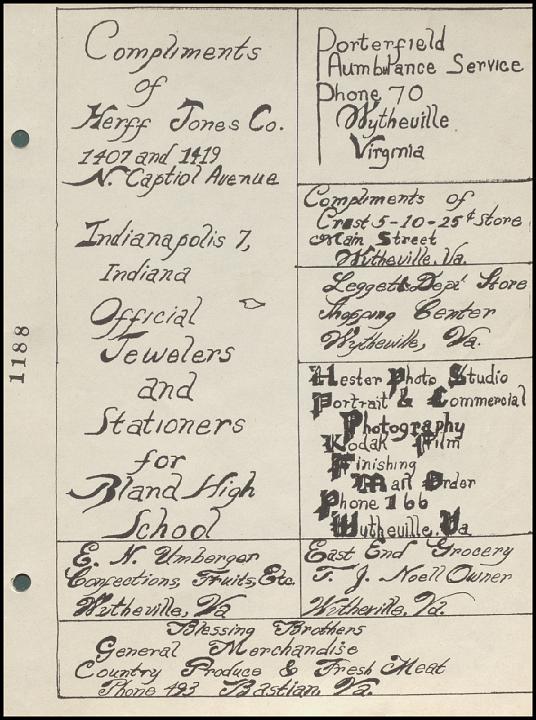 Compliments
of
Herff Jones Co.
1407 and 1419
N. Captiol Avenue
Indianapolis 7,
Indiana
Official
Jewelers
and
Stationers
for
Bland High
School
Porterfield
Aumbulance Service
Phone 70
Wytheville
Virginia
Compliments of
Crest 5-10-25¢ store
Main Street
Wytheville, Va.
Leggett Dept Store
Shopping Center
Wytheville, Va.
Hester Photo Studio
Portrait & Commercial
Photography
Kodak Film
Finishing
Mail Order
Phone 166
Wytheville, Va
E. N. Umberger
Confections, Fruits, Etc.
Wytheville, Va
East End Grocery
T. J. Noell Owner
Wytheville, Va.
Blessing Brothers
General Merchandise
Country Produce & Fresh Meat
Phone 493 Bastian, Va.
1188